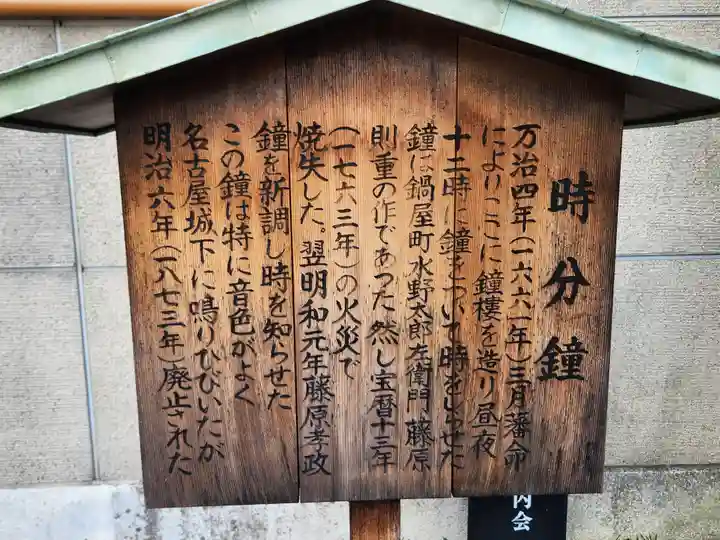 時分鐘
万治四年(一六六一年)三月藩命
によりここに鐘樓を造り昼夜
十二時に鐘をついて時をしらせた
鐘は鍋屋町水野太郎左衛門、藤原
則重の作であった然し宝暦十三年
(一七六三年)の火災で
焼失した。翌明和元年藤原孝政
鐘を新調し時を知らせた
この鐘は特に音色がよく
名古屋城下に鳴りひびいたが
明治六年(一八七三年)廃止された
内会